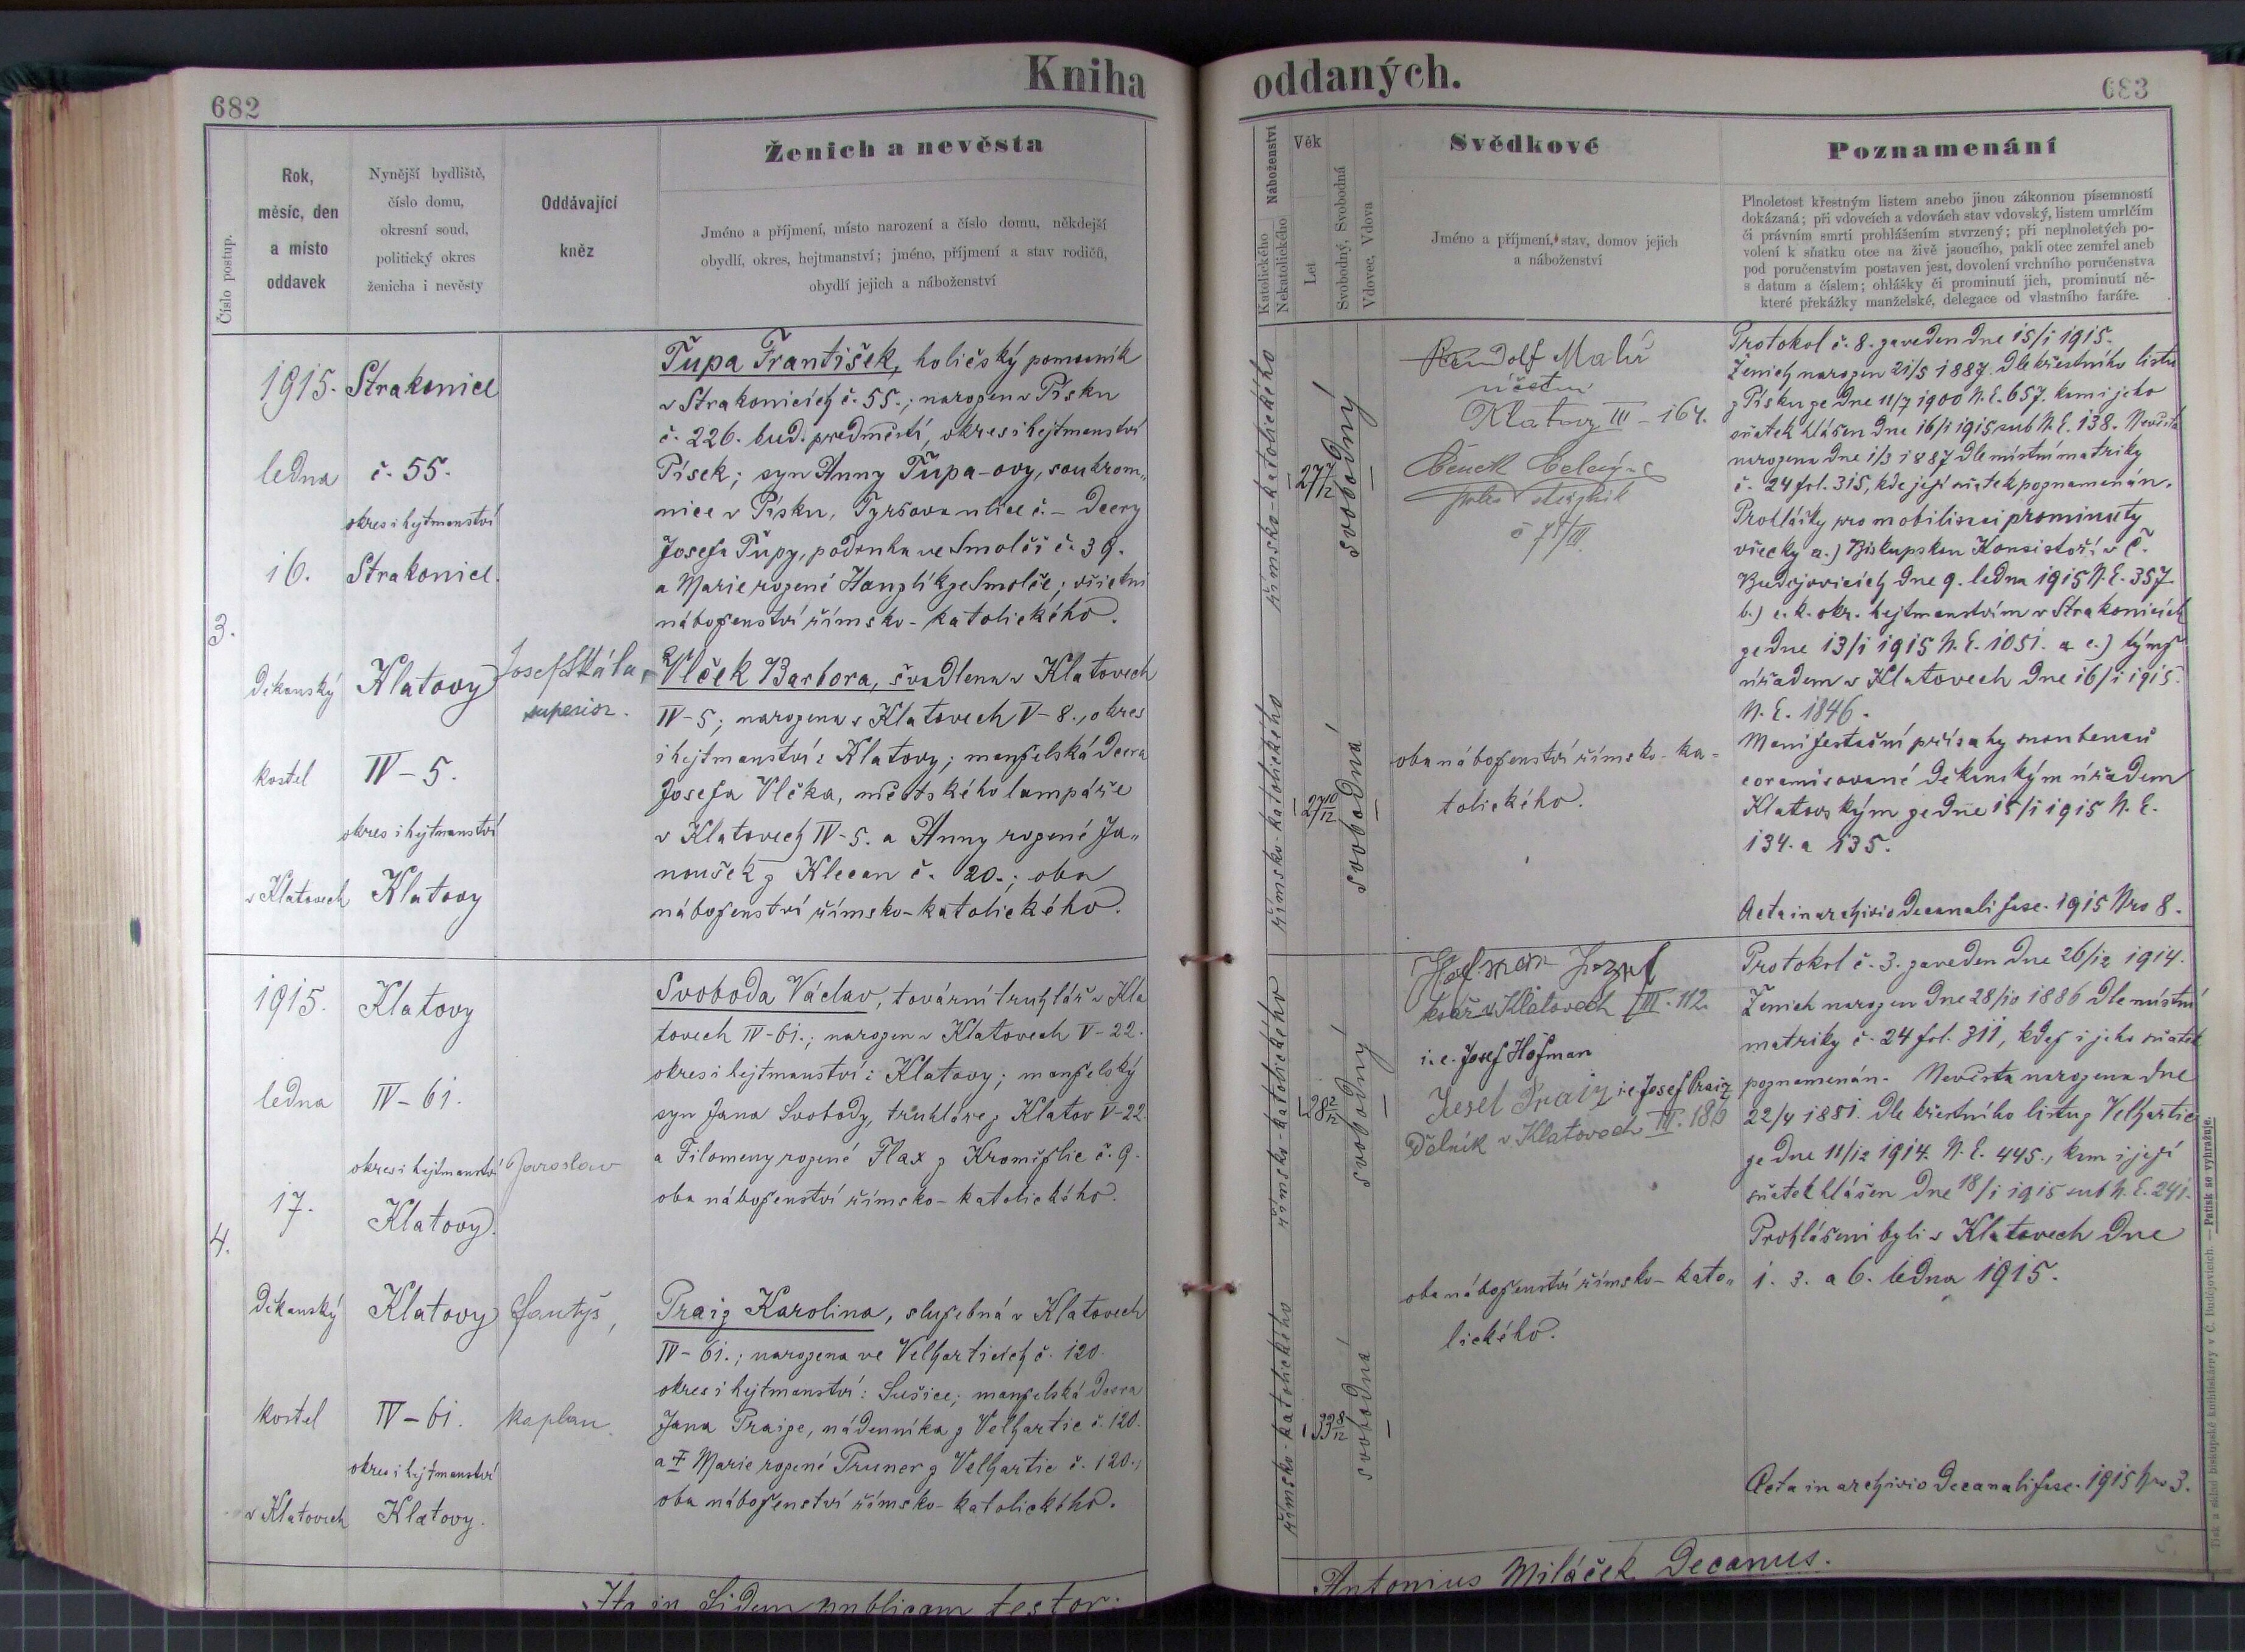 Kniha
682
Číslo postup.
Rok,
měsíc, den
a místo
oddavek
Nynější bydliště,
číslo domu,
okresní soud,
politický okres
ženicha i nevěsty
Oddávající
kněz
Ženich a nevěsta
Jméno a příjmení, místo narození a číslo domu, někdejší
obydlí, okres, hejtmanství; jméno, příjmení a stav rodičů,
obydlí jejich a náboženství
3.
1915.
ledna
16.
děkanský
kostel
v Klatovech
Strakonice
č. 55.
okres i hejtmanství
Strakonice.
Klatovy
IV - 5.
okres i hejtmanství
Klatovy
Josef Skála,
superior.
Ťupa František, holičský pomocník
v Strakonicích č. 55.; narozen v Písku
č. 226. bud. předměstí, okres i hejtmanství
Písek; syn Anny Ťupa-ovy, soukrom„
nice v Písku, Tyršova ulice č. - dcery
Josefa Ťupy, podruha ve Smolči č. 39.
a Marie rozené Hanzlík ze Smolče; všichni
náboženství římsko-katolického.
Vlček Barbora, švadlena v Klatovech
IV-5; narozena v Klatovech V-8., okres
i hejtmanství: Klatovy; manželská dcera
Josefa Vlčka, městského lampáře
v Klatovech IV-5. a Anny rozené Ja„
noušek z Klecan č. 20.; oba
náboženství římsko-katolického.
4.
1915.
ledna
17.
děkanský
kostel
v Klatovech
Klatovy
IV - 61.
okres i hejtmanství
Klatovy.
Klatovy
IV - 61.
okres i hejtmanství
Klatovy.
Jaroslav
kaplan.
Svoboda Václav, tovární truhlář v Kla
tovech IV-61.; narozen v Klatovech V-22.
okres i hejtmanství: Klatovy; manželský
syn Jana Svobody, truhláře z Klatov V-22.
a Filomeny rozené Flax z č. 9.
oba náboženství římsko-katolického.
Praiz Karolina, služebná v Klatovech
IV-61.; narozena ve Velharticích č. 120.
okres i hejtmanství: Sušice; manželská dcera
Jana Praize, nádenníka z Velhartic č. 120.
a † Marie rozené Pruner z Velhartic č. 120.;
oba náboženství římsko-katolického.
Ita in fidem publicam testor:
oddaných.
683
Náboženství
Katolického
Nekatolického
Věk
Let
Svobodný, Svobodná
Vdovec, Vdova
Svědkové
Jméno a příjmení, stav, domov jejich
a náboženství
Poznamenání
Plnoletost křestným listem anebo jinou zákonnou písemností
dokázaná; při vdovcích a vdovách stav vdovský, listem umrlčím
či právním smrti prohlášením stvrzený; při neplnoletých po-
volení k sňatku otce na živě jsoucího, pakli otec zemřel aneb
pod poručenstvím postaven jest, dovolení vrchního poručenstva
s datum a číslem; ohlášky či prominutí jich, prominutí ně-
které překážky manželské, delegace od vlastního faráře.
římsko-katolického
1 27 7/12
svobodný 1
římsko-katolického
1 27 10/12
svobodná 1
Malý
Klatovy III - 164.
oba náboženství římsko-ka-
tolického.
Protokol č. 8. zaveden dne 15/1 1915.
Ženich narozen 21/5 1887. Dle křestního listu
z Písku ze dne 11/7 1900 N. E. 657. kam i jeho
sňatek hlášen dne 16/1 1915 sub N. E. 138. Nevěsta
narozena dne 1/3 1887 dle místní matriky
č. 24 fol. 315, kde její sňatek poznamenán.
Prohlášky pro mobilisaci prominuty
všecky a.) Biskupskou Konsistoří v Č.
Budějovicích dne 9. ledna 1915 N. E. 357.
b.) c. k. okr. hejtmanstvím v Strakonicích
ze dne 13/1 1915 N. E. 1051. a c.) týmž
úřadem v Klatovech dne 16/1 1915.
N. E. 1846.
Manifestační přísahy snoubenců
coramisované děkanským úřadem
Klatovským ze dne 15/1 1915 N. E.
134. a 135.
Acta in archivio decanali fasc. 1915 Nro 8.
římsko-katolického
1 28 2/12
svobodný 1
římsko-katolického
1 33 8/12
svobodná 1
Hofman Jozef
v Klatovech III. 112.
i. e. Josef Hofman
Josef Praiz i. e. Josef Praiz
dělník v Klatovech III. 186
oba náboženství římsko-kato„
lického.
Protokol č. 3. zaveden dne 26/12 1914.
Ženich narozen dne 28/10 1886 dle místní
matriky č. 24 fol. 311, kdež i jeho sňatek
poznamenán. Nevěsta narozena dne
22/4 1881. dle křestního listu z Velhartic
ze dne 11/12 1914. N. E. 445., kam i její
sňatek hlášen dne 18/1 1915 sub N. E. 241.
Prohlášeni byli v Klatovech dne
1. 3. a 6. ledna 1915.
Acta in archivio decanali fasc. 1915 Nro 3.
Antonius Miláček Decanus.
Tisk a sklad biskupské knihtiskárny v Č. Budějovicích. — Patisk se vyhražuje.